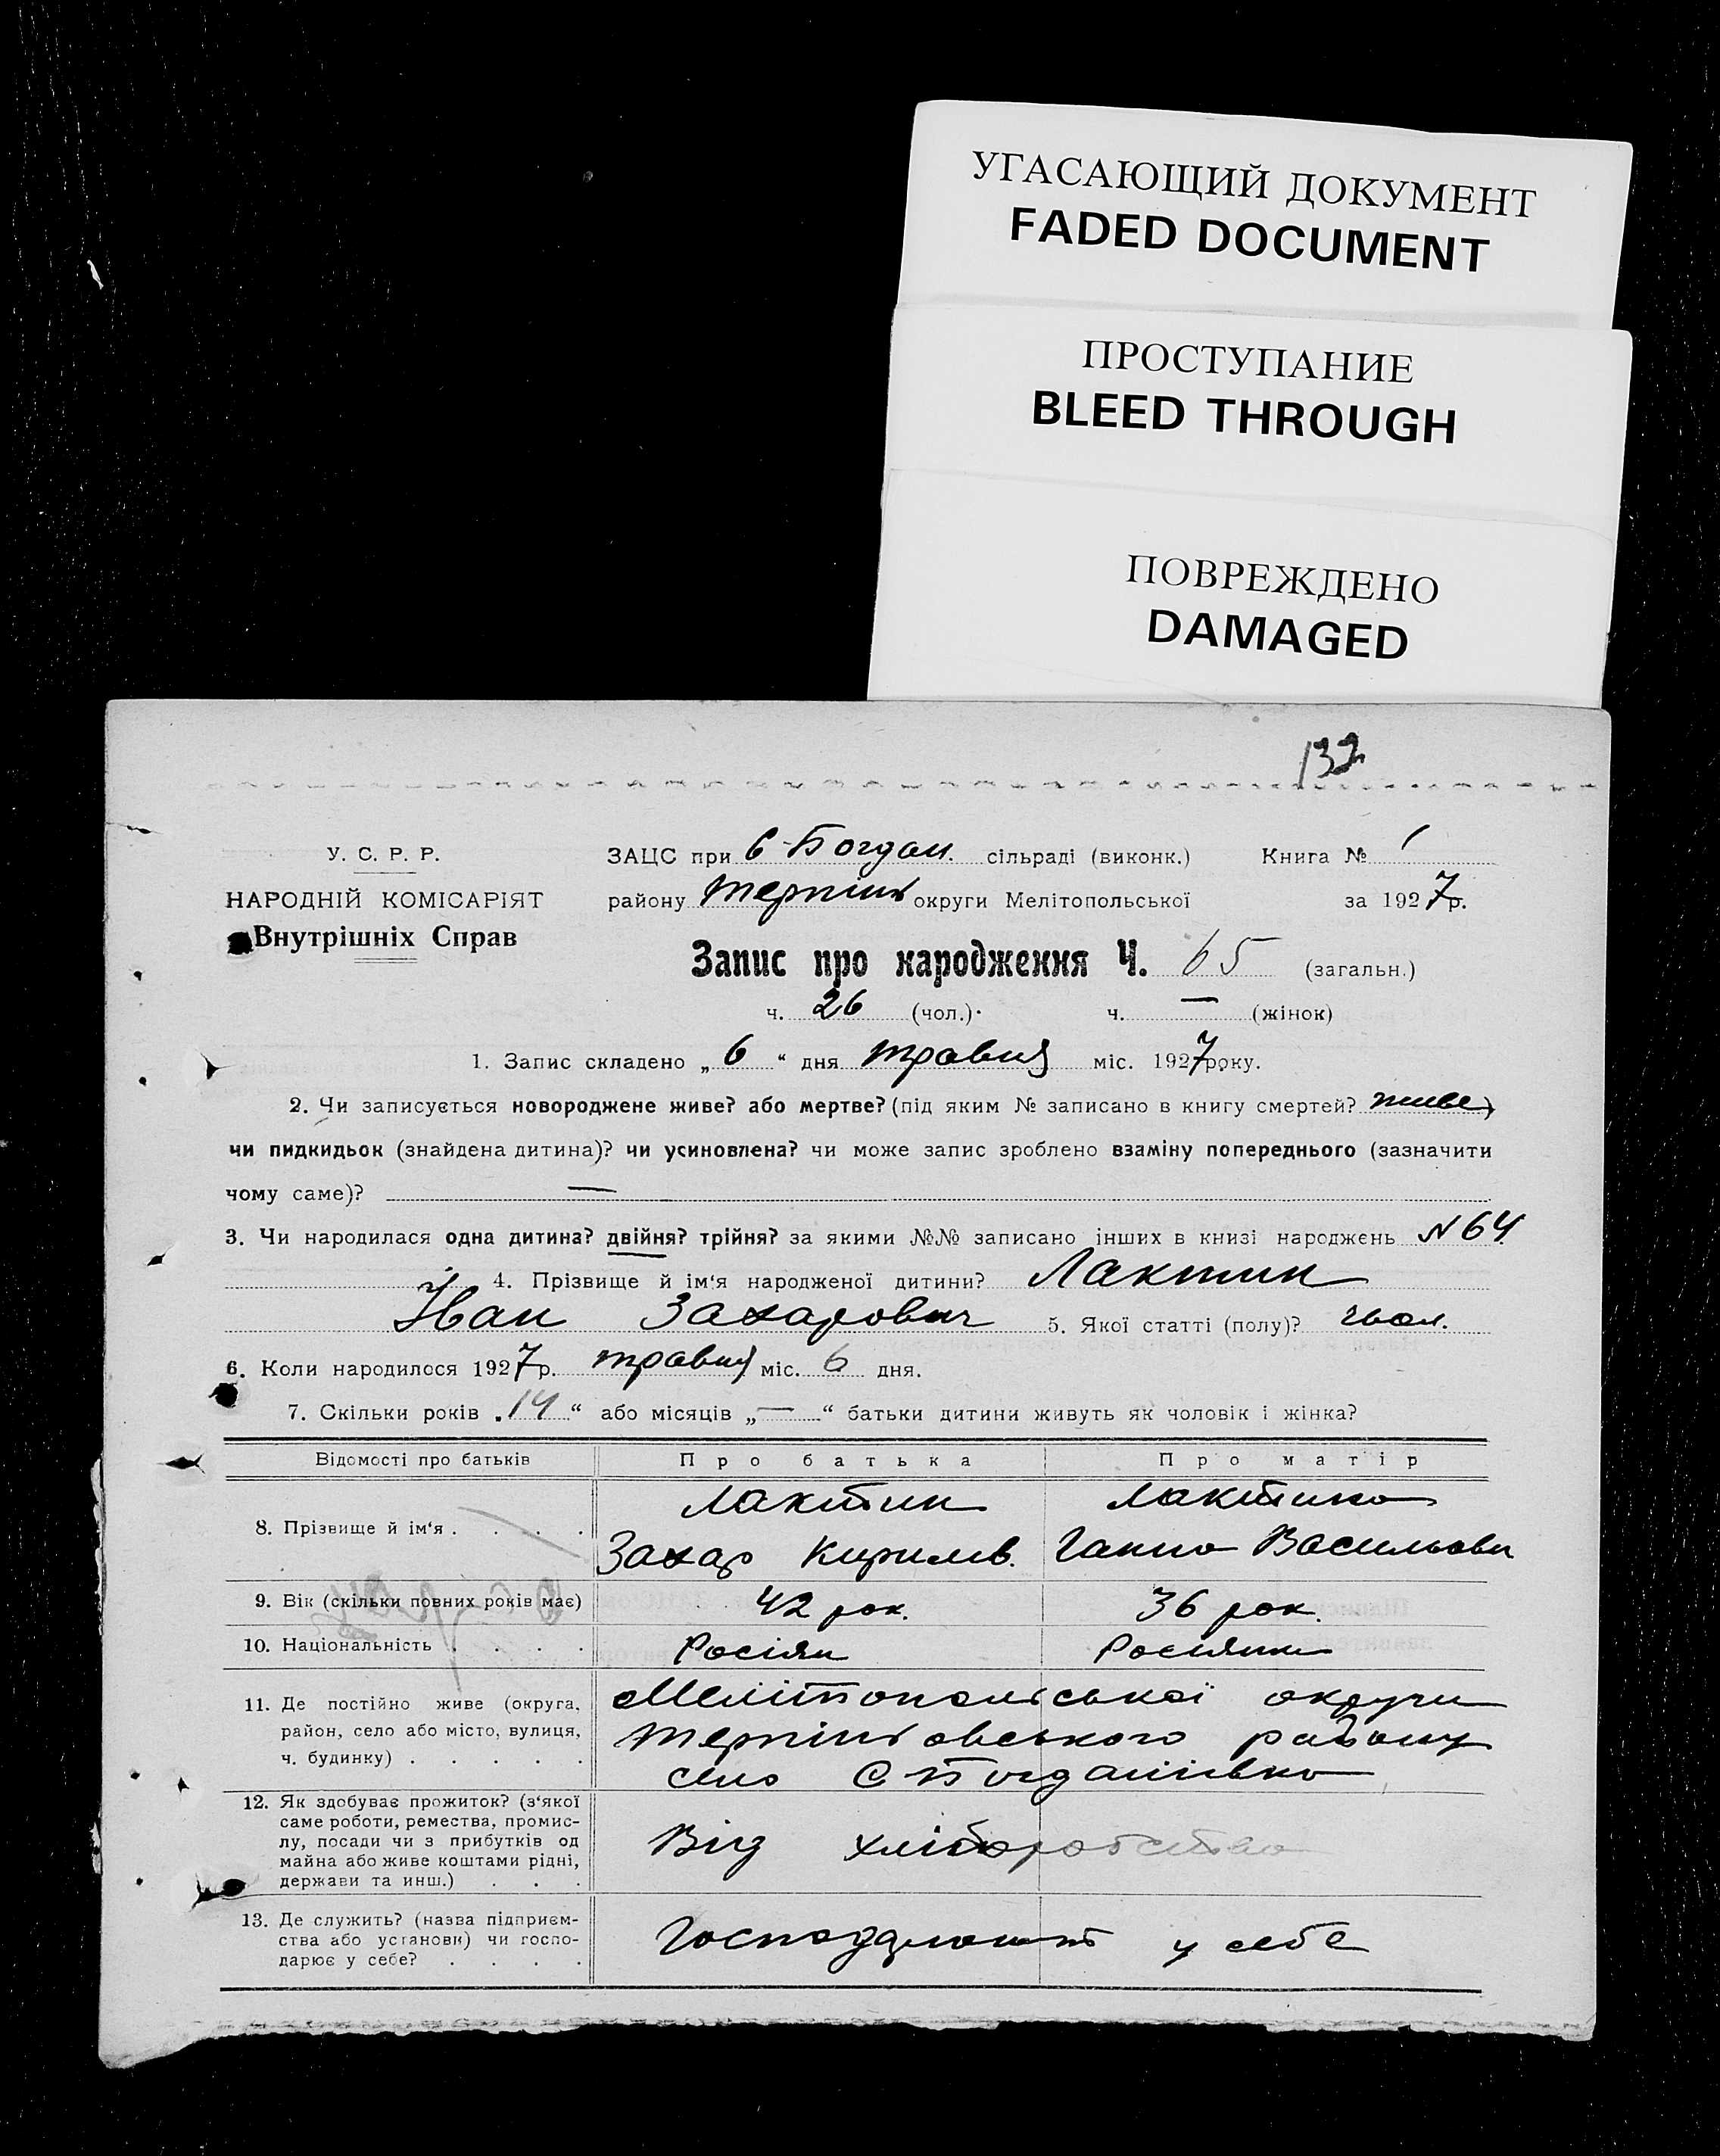 УГАСАЮЩИЙ ДОКУМЕНТ
FADED DOCUMENT
ПРОСТУПАНИЕ
BLEED THROUGH
ПОВРЕЖДЕНО
DAMAGED
132
У. С. Р. Р.
НАРОДНІЙ КОМІСАРІЯТ
Внутрішніх Справ
ЗАЦС при С-Богдан. сільраді (виконк.) Книга № 1
району Терпіньс округи Мелітопольської за 1927р.
Запис про народження Ч. 65 (загальн.)
ч. 26 (чол.) ч. — (жінок)
1. Запис складено „6“ дня травня міс. 1927 року.
2. Чи записується новороджене живе? або мертве? (під яким № записано в книгу смертей? живе)
чи пидкидьок (знайдена дитина)? чи усиновлена? чи може запис зроблено взаміну попереднього (зазначити
чому саме)? —
3. Чи народилася одна дитина? двійня? трійня? за якими №№ записано інших в книзі народжень N 64
4. Прізвище й ім‘я народженої дитини? Лактин
Іван Захарович 5. Якої статті (полу)? чол.
6. Коли народилося 1927р. травня міс. 6 дня.
7. Скільки років „14“ або місяців „—“ батьки дитини живуть як чоловік і жінка?
Відомості про батьків Про батька Про матір
8. Прізвище й ім‘я . . . . Лактин Лактина
Захар Кирилів. Ганна Васильовн
9. Вік (скільки повних років має) 42 рок. 36 рок.
10. Національність . . . . Росіян Росіянка
11. Де постійно живе (округа, район, село або місто, вулиця, ч. будинку) . . . . . Мелітопольської округи
Терпіньовського району
село С Богданівка
12. Як здобуває прожиток? (з‘якої
саме роботи, ремества, промис-
лу, посади чи з прибутків од
майна або живе коштами рідні,
держави та инш.) . . .
Від хліборобства
13. Де служить? (назва підприєм-
ства або установи) чи госпо-
дарює у себе? . . . .
Господарюють у себе